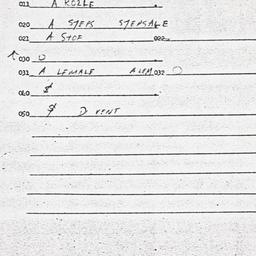 011 A ROZLE
020 A STEPS STEPSALE
021 A STOE 002
030 O
031 A LEMALE ALEM 032
040 $
050 $ D VENT